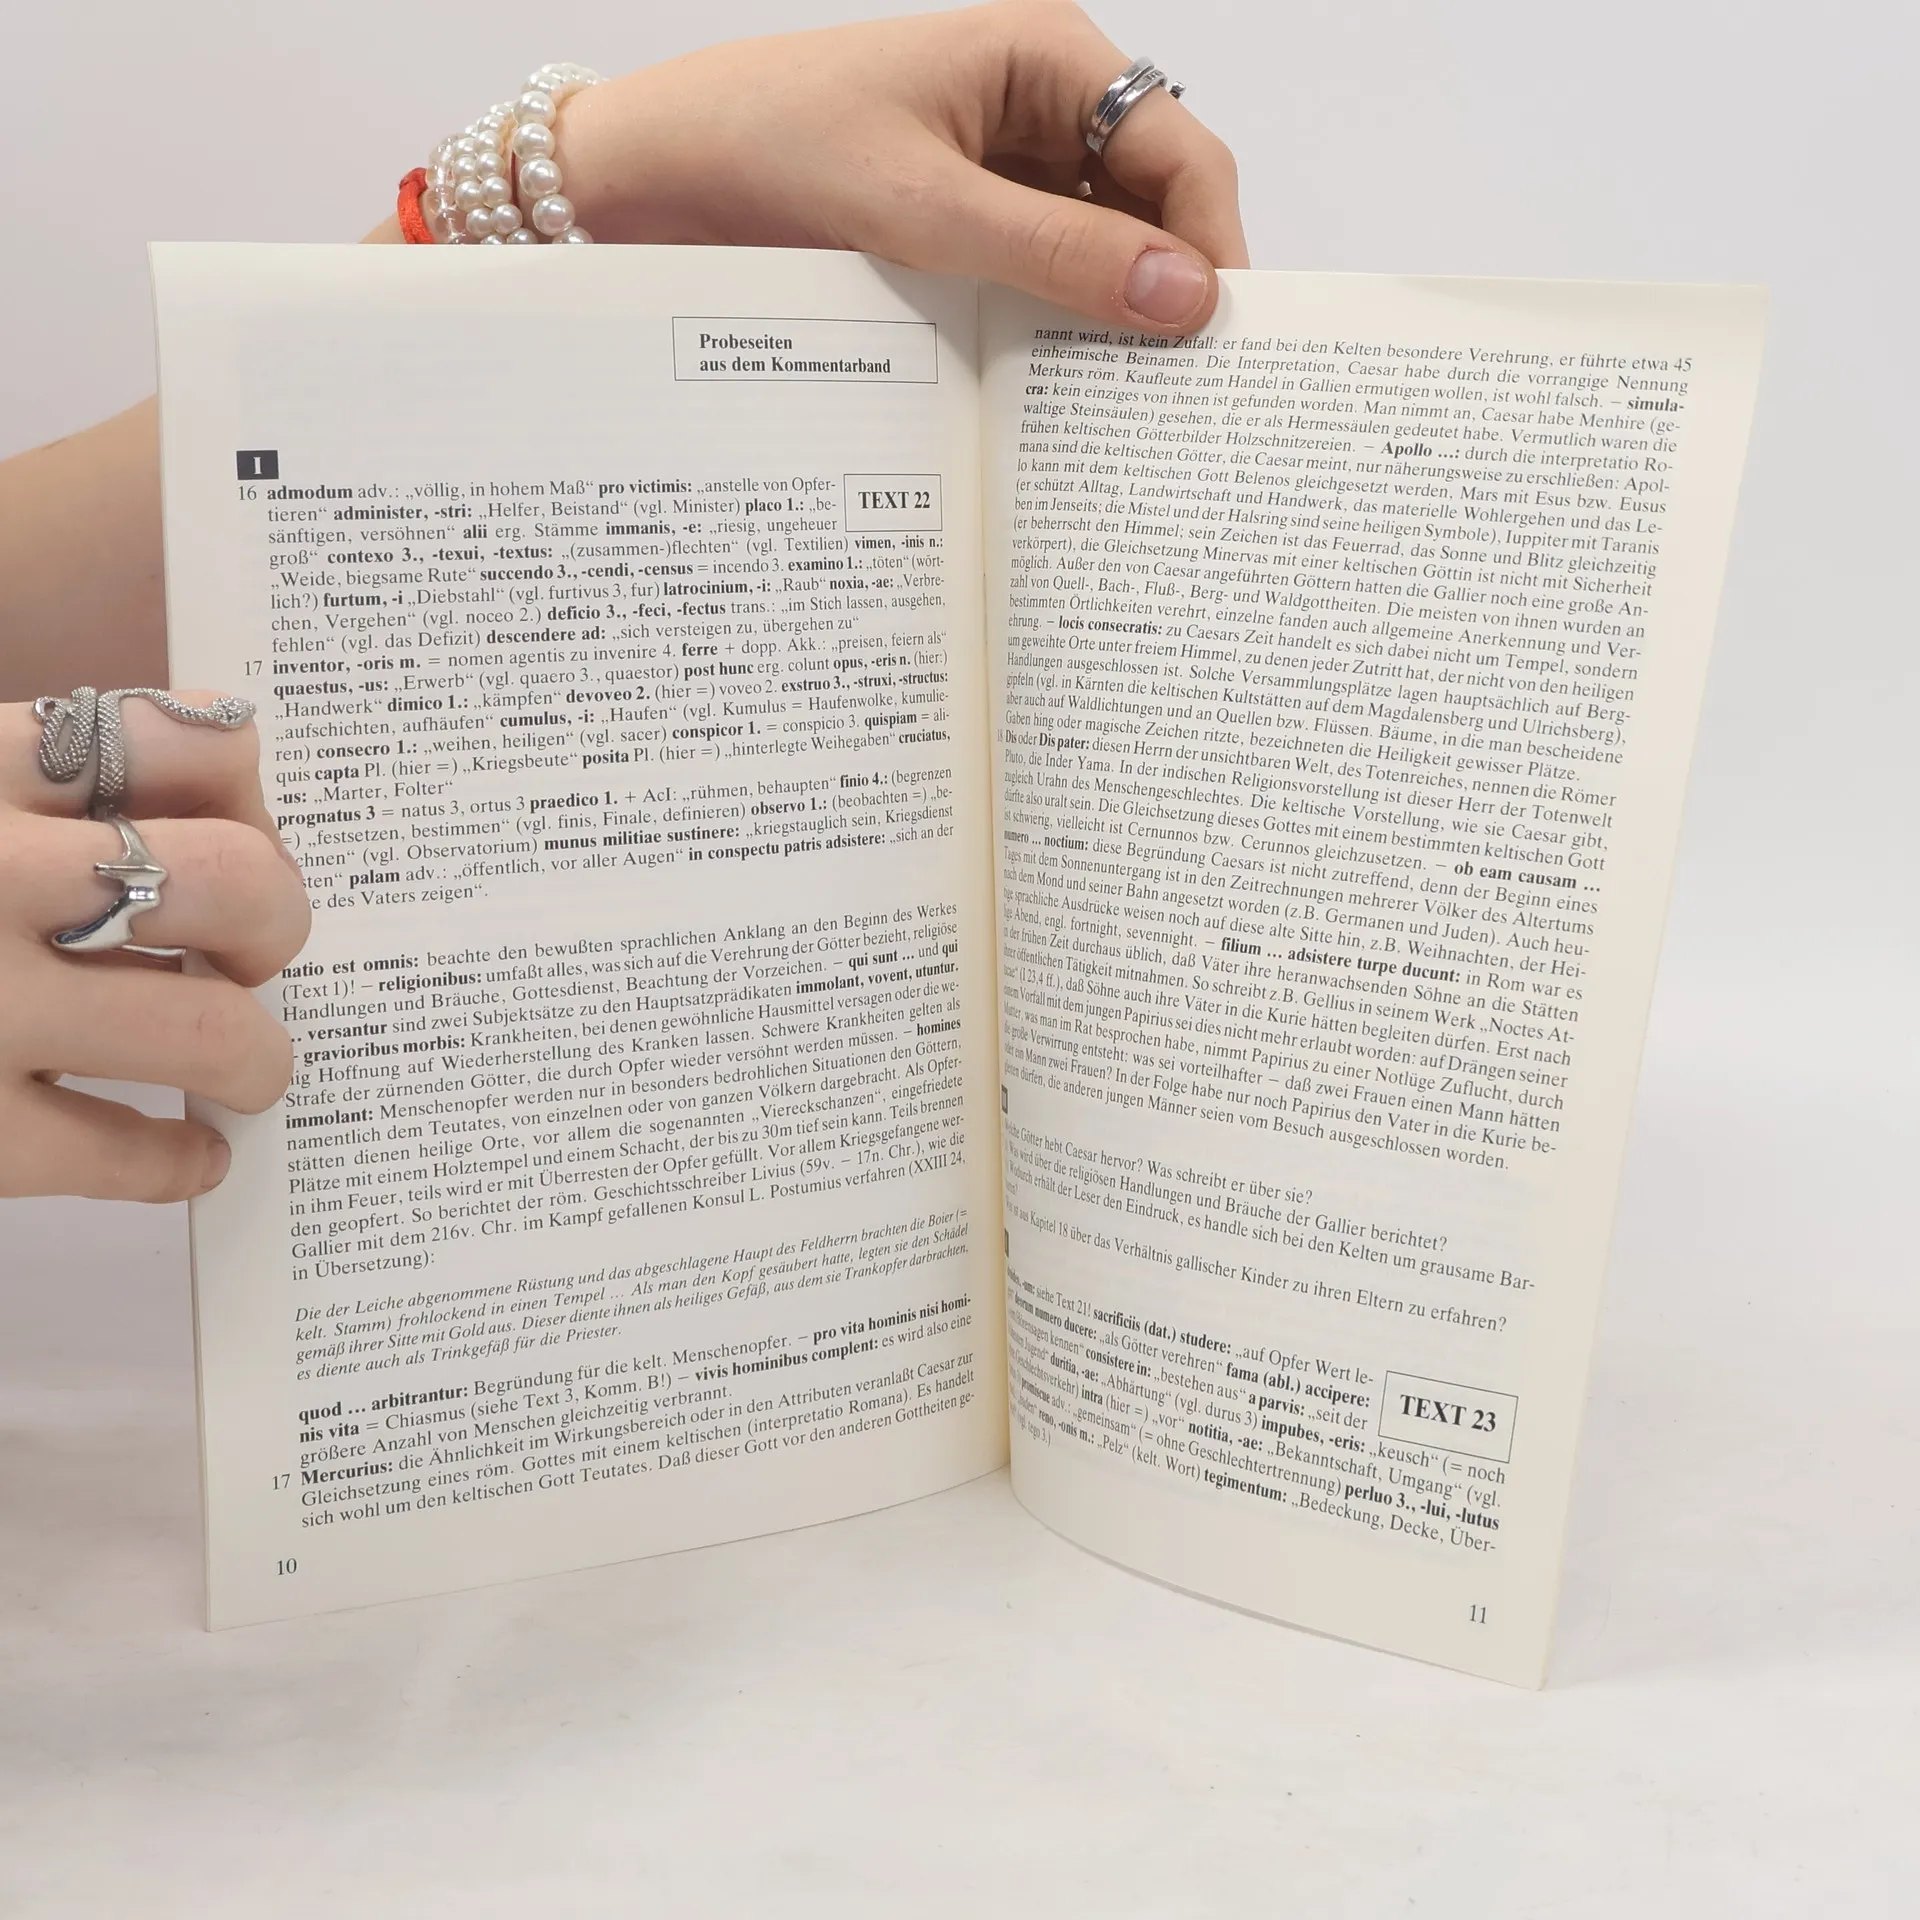 Probeseiten
aus dem Kommentarband
I
16 admodum adv.: „völlig, in hohem Maß“ pro victimis: „anstelle von Opfer-
tieren“ administer, -stri: „Helfer, Beistand“ (vgl. Minister) placo 1.: „be-
sänftigen, versöhnen“ alii erg. Stämme immanis, -e: „riesig, ungeheuer
TEXT 22
groß“ contexo 3., -texui, -textus: „(zusammen-)flechten“ (vgl. Textilien) vimen, -inis n.:
„Weide, biegsame Rute“ succendo 3., -cendi, -census = incendo 3. examino 1.: „töten“ (wört-
lich?) furtum, -i „Diebstahl“ (vgl. furtivus 3, fur) latrocinium, -i: „Raub“ noxia, -ae: „Verbre-
chen, Vergehen“ (vgl. noceo 2.) deficio 3., -feci, -fectus trans.: „im Stich lassen, ausgehen,
fehlen“ (vgl. das Defizit) descendere ad: „sich versteigen zu, übergehen zu“
17 inventor, -oris m. = nomen agentis zu invenire 4. ferre + dopp. Akk.: „preisen, feiern als“
quaestus, -us: „Erwerb“ (vgl. quaero 3., quaestor) post hunc erg. colunt opus, -eris n. (hier:)
„Handwerk“ dimico 1.: „kämpfen“ devoveo 2. (hier =) voveo 2. exstruo 3., -struxi, -structus:
„aufschichten, aufhäufen“ cumulus, -i: „Haufen“ (vgl. Kumulus = Haufenwolke, kumulie-
ren) consecro 1.: „weihen, heiligen“ (vgl. sacer) conspicor 1. = conspicio 3. quispiam = ali-
quis capta Pl. (hier =) „Kriegsbeute“ posita Pl. (hier =) „hinterlegte Weihegaben“ cruciatus,
-us: „Marter, Folter“
prognatus 3 = natus 3, ortus 3 praedico 1. + AcI: „rühmen, behaupten“ finio 4.: (begrenzen
=) „festsetzen, bestimmen“ (vgl. finis, Finale, definieren) observo 1.: (beobachten =) „be-
chnen“ (vgl. Observatorium) munus militiae sustinere: „kriegstauglich sein, Kriegsdienst
sten“ palam adv.: „öffentlich, vor aller Augen“ in conspectu patris adsistere: „sich an der
e des Vaters zeigen“.
natio est omnis: beachte den bewußten sprachlichen Anklang an den Beginn des Werkes
(Text 1)! – religionibus: umfaßt alles, was sich auf die Verehrung der Götter bezieht, religiöse
Handlungen und Bräuche, Gottesdienst, Beachtung der Vorzeichen. – qui sunt ... und qui
.. versantur sind zwei Subjektsätze zu den Hauptsatzprädikaten immolant, vovent, utuntur.
– gravioribus morbis: Krankheiten, bei denen gewöhnliche Hausmittel versagen oder die we-
nig Hoffnung auf Wiederherstellung des Kranken lassen. Schwere Krankheiten gelten als
Strafe der zürnenden Götter, die durch Opfer wieder versöhnt werden müssen. – homines
immolant: Menschenopfer werden nur in besonders bedrohlichen Situationen den Göttern,
namentlich dem Teutates, von einzelnen oder von ganzen Völkern dargebracht. Als Opfer-
stätten dienen heilige Orte, vor allem die sogenannten „Viereckschanzen“, eingefriedete
Plätze mit einem Holztempel und einem Schacht, der bis zu 30m tief sein kann. Teils brennen
in ihm Feuer, teils wird er mit Überresten der Opfer gefüllt. Vor allem Kriegsgefangene wer-
den geopfert. So berichtet der röm. Geschichtsschreiber Livius (59v. – 17n. Chr.), wie die
Gallier mit dem 216v. Chr. im Kampf gefallenen Konsul L. Postumius verfahren (XXIII 24,
in Übersetzung):
Die der Leiche abgenommene Rüstung und das abgeschlagene Haupt des Feldherrn brachten die Boier (=
kelt. Stamm) frohlockend in einen Tempel ... Als man den Kopf gesäubert hatte, legten sie den Schädel
gemäß ihrer Sitte mit Gold aus. Dieser diente ihnen als heiliges Gefäß, aus dem sie Trankopfer darbrachten,
es diente auch als Trinkgefäß für die Priester.
quod ... arbitrantur: Begründung für die kelt. Menschenopfer. – pro vita hominis nisi homi-
nis vita = Chiasmus (siehe Text 3, Komm. B!) – vivis hominibus complent: es wird also eine
größere Anzahl von Menschen gleichzeitig verbrannt.
17 Mercurius: die Ähnlichkeit im Wirkungsbereich oder in den Attributen veranlaßt Caesar zur
Gleichsetzung eines röm. Gottes mit einem keltischen (interpretatio Romana). Es handelt
sich wohl um den keltischen Gott Teutates. Daß dieser Gott vor den anderen Gottheiten ge-
10
nannt wird, ist kein Zufall: er fand bei den Kelten besondere Verehrung, er führte etwa 45
einheimische Beinamen. Die Interpretation, Caesar habe durch die vorrangige Nennung
Merkurs röm. Kaufleute zum Handel in Gallien ermutigen wollen, ist wohl falsch. – simula-
cra: kein einziges von ihnen ist gefunden worden. Man nimmt an, Caesar habe Menhire (ge-
waltige Steinsäulen) gesehen, die er als Hermessäulen gedeutet habe. Vermutlich waren die
frühen keltischen Götterbilder Holzschnitzereien. – Apollo ...: durch die interpretatio Ro-
mana sind die keltischen Götter, die Caesar meint, nur näherungsweise zu erschließen: Apol-
lo kann mit dem keltischen Gott Belenos gleichgesetzt werden, Mars mit Esus bzw. Eusus
(er schützt Alltag, Landwirtschaft und Handwerk, das materielle Wohlergehen und das Le-
ben im Jenseits; die Mistel und der Halsring sind seine heiligen Symbole), Iuppiter mit Taranis
(er beherrscht den Himmel; sein Zeichen ist das Feuerrad, das Sonne und Blitz gleichzeitig
verkörpert), die Gleichsetzung Minervas mit einer keltischen Göttin ist nicht mit Sicherheit
möglich. Außer den von Caesar angeführten Göttern hatten die Gallier noch eine große An-
zahl von Quell-, Bach-, Fluß-, Berg- und Waldgottheiten. Die meisten von ihnen wurden an
bestimmten Örtlichkeiten verehrt, einzelne fanden auch allgemeine Anerkennung und Ver-
ehrung. – locis consecratis: zu Caesars Zeit handelt es sich dabei nicht um Tempel, sondern
um geweihte Orte unter freiem Himmel, zu denen jeder Zutritt hat, der nicht von den heiligen
Handlungen ausgeschlossen ist. Solche Versammlungsplätze lagen hauptsächlich auf Berg-
gipfeln (vgl. in Kärnten die keltischen Kultstätten auf dem Magdalensberg und Ulrichsberg),
aber auch auf Waldlichtungen und an Quellen bzw. Flüssen. Bäume, in die man bescheidene
Gaben hing oder magische Zeichen ritzte, bezeichneten die Heiligkeit gewisser Plätze.
18 Dis oder Dis pater: diesen Herrn der unsichtbaren Welt, des Totenreiches, nennen die Römer
Pluto, die Inder Yama. In der indischen Religionsvorstellung ist dieser Herr der Totenwelt
zugleich Urahn des Menschengeschlechtes. Die keltische Vorstellung, wie sie Caesar gibt,
dürfte also uralt sein. Die Gleichsetzung dieses Gottes mit einem bestimmten keltischen Gott
ist schwierig, vielleicht ist Cernunnos bzw. Cerunnos gleichzusetzen. – ob eam causam ...
numero ... noctium: diese Begründung Caesars ist nicht zutreffend, denn der Beginn eines
Tages mit dem Sonnenuntergang ist in den Zeitrechnungen mehrerer Völker des Altertums
nach dem Mond und seiner Bahn angesetzt worden (z.B. Germanen und Juden). Auch heu-
tige sprachliche Ausdrücke weisen noch auf diese alte Sitte hin, z.B. Weihnachten, der Hei-
lige Abend, engl. fortnight, sevennight. – filium ... adsistere turpe ducunt: in Rom war es
in der frühen Zeit durchaus üblich, daß Väter ihre heranwachsenden Söhne an die Stätten
ihrer öffentlichen Tätigkeit mitnahmen. So schreibt z.B. Gellius in seinem Werk „Noctes At-
ticae“ (I 23,4 ff.), daß Söhne auch ihre Väter in die Kurie hätten begleiten dürfen. Erst nach
einem Vorfall mit dem jungen Papirius sei dies nicht mehr erlaubt worden: auf Drängen seiner
Mutter, was man im Rat besprochen habe, nimmt Papirius zu einer Notlüge Zuflucht, durch
die große Verwirrung entsteht: was sei vorteilhafter – daß zwei Frauen einen Mann hätten
oder ein Mann zwei Frauen? In der Folge habe nur noch Papirius den Vater in die Kurie be-
gleiten dürfen, die anderen jungen Männer seien vom Besuch ausgeschlossen worden.
Welche Götter hebt Caesar hervor? Was schreibt er über sie?
Was wird über die religiösen Handlungen und Bräuche der Gallier berichtet?
Wodurch erhält der Leser den Eindruck, es handle sich bei den Kelten um grausame Bar-
baren?
Was ist aus Kapitel 18 über das Verhältnis gallischer Kinder zu ihren Eltern zu erfahren?
siehe Text 21! sacrificiis (dat.) studere: „auf Opfer Wert le-
deorum numero ducere: „als Götter verehren“ fama (abl.) accipere:
vom Hörensagen kennen“ consistere in: „bestehen aus“ a parvis: „seit der
Jugend“ duritia, -ae: „Abhärtung“ (vgl. durus 3) impubes, -eris: „keusch“ (= noch
TEXT 23
Geschlechtsverkehr) intra (hier =) „vor“ notitia, -ae: „Bekanntschaft, Umgang“ (vgl.
promiscue adv.: „gemeinsam“ (= ohne Geschlechtertrennung) perluo 3., -lui, -lutus
reno, -onis m.: „Pelz“ (kelt. Wort) tegimentum: „Bedeckung, Decke, Über-
vgl. tego 3.)
11